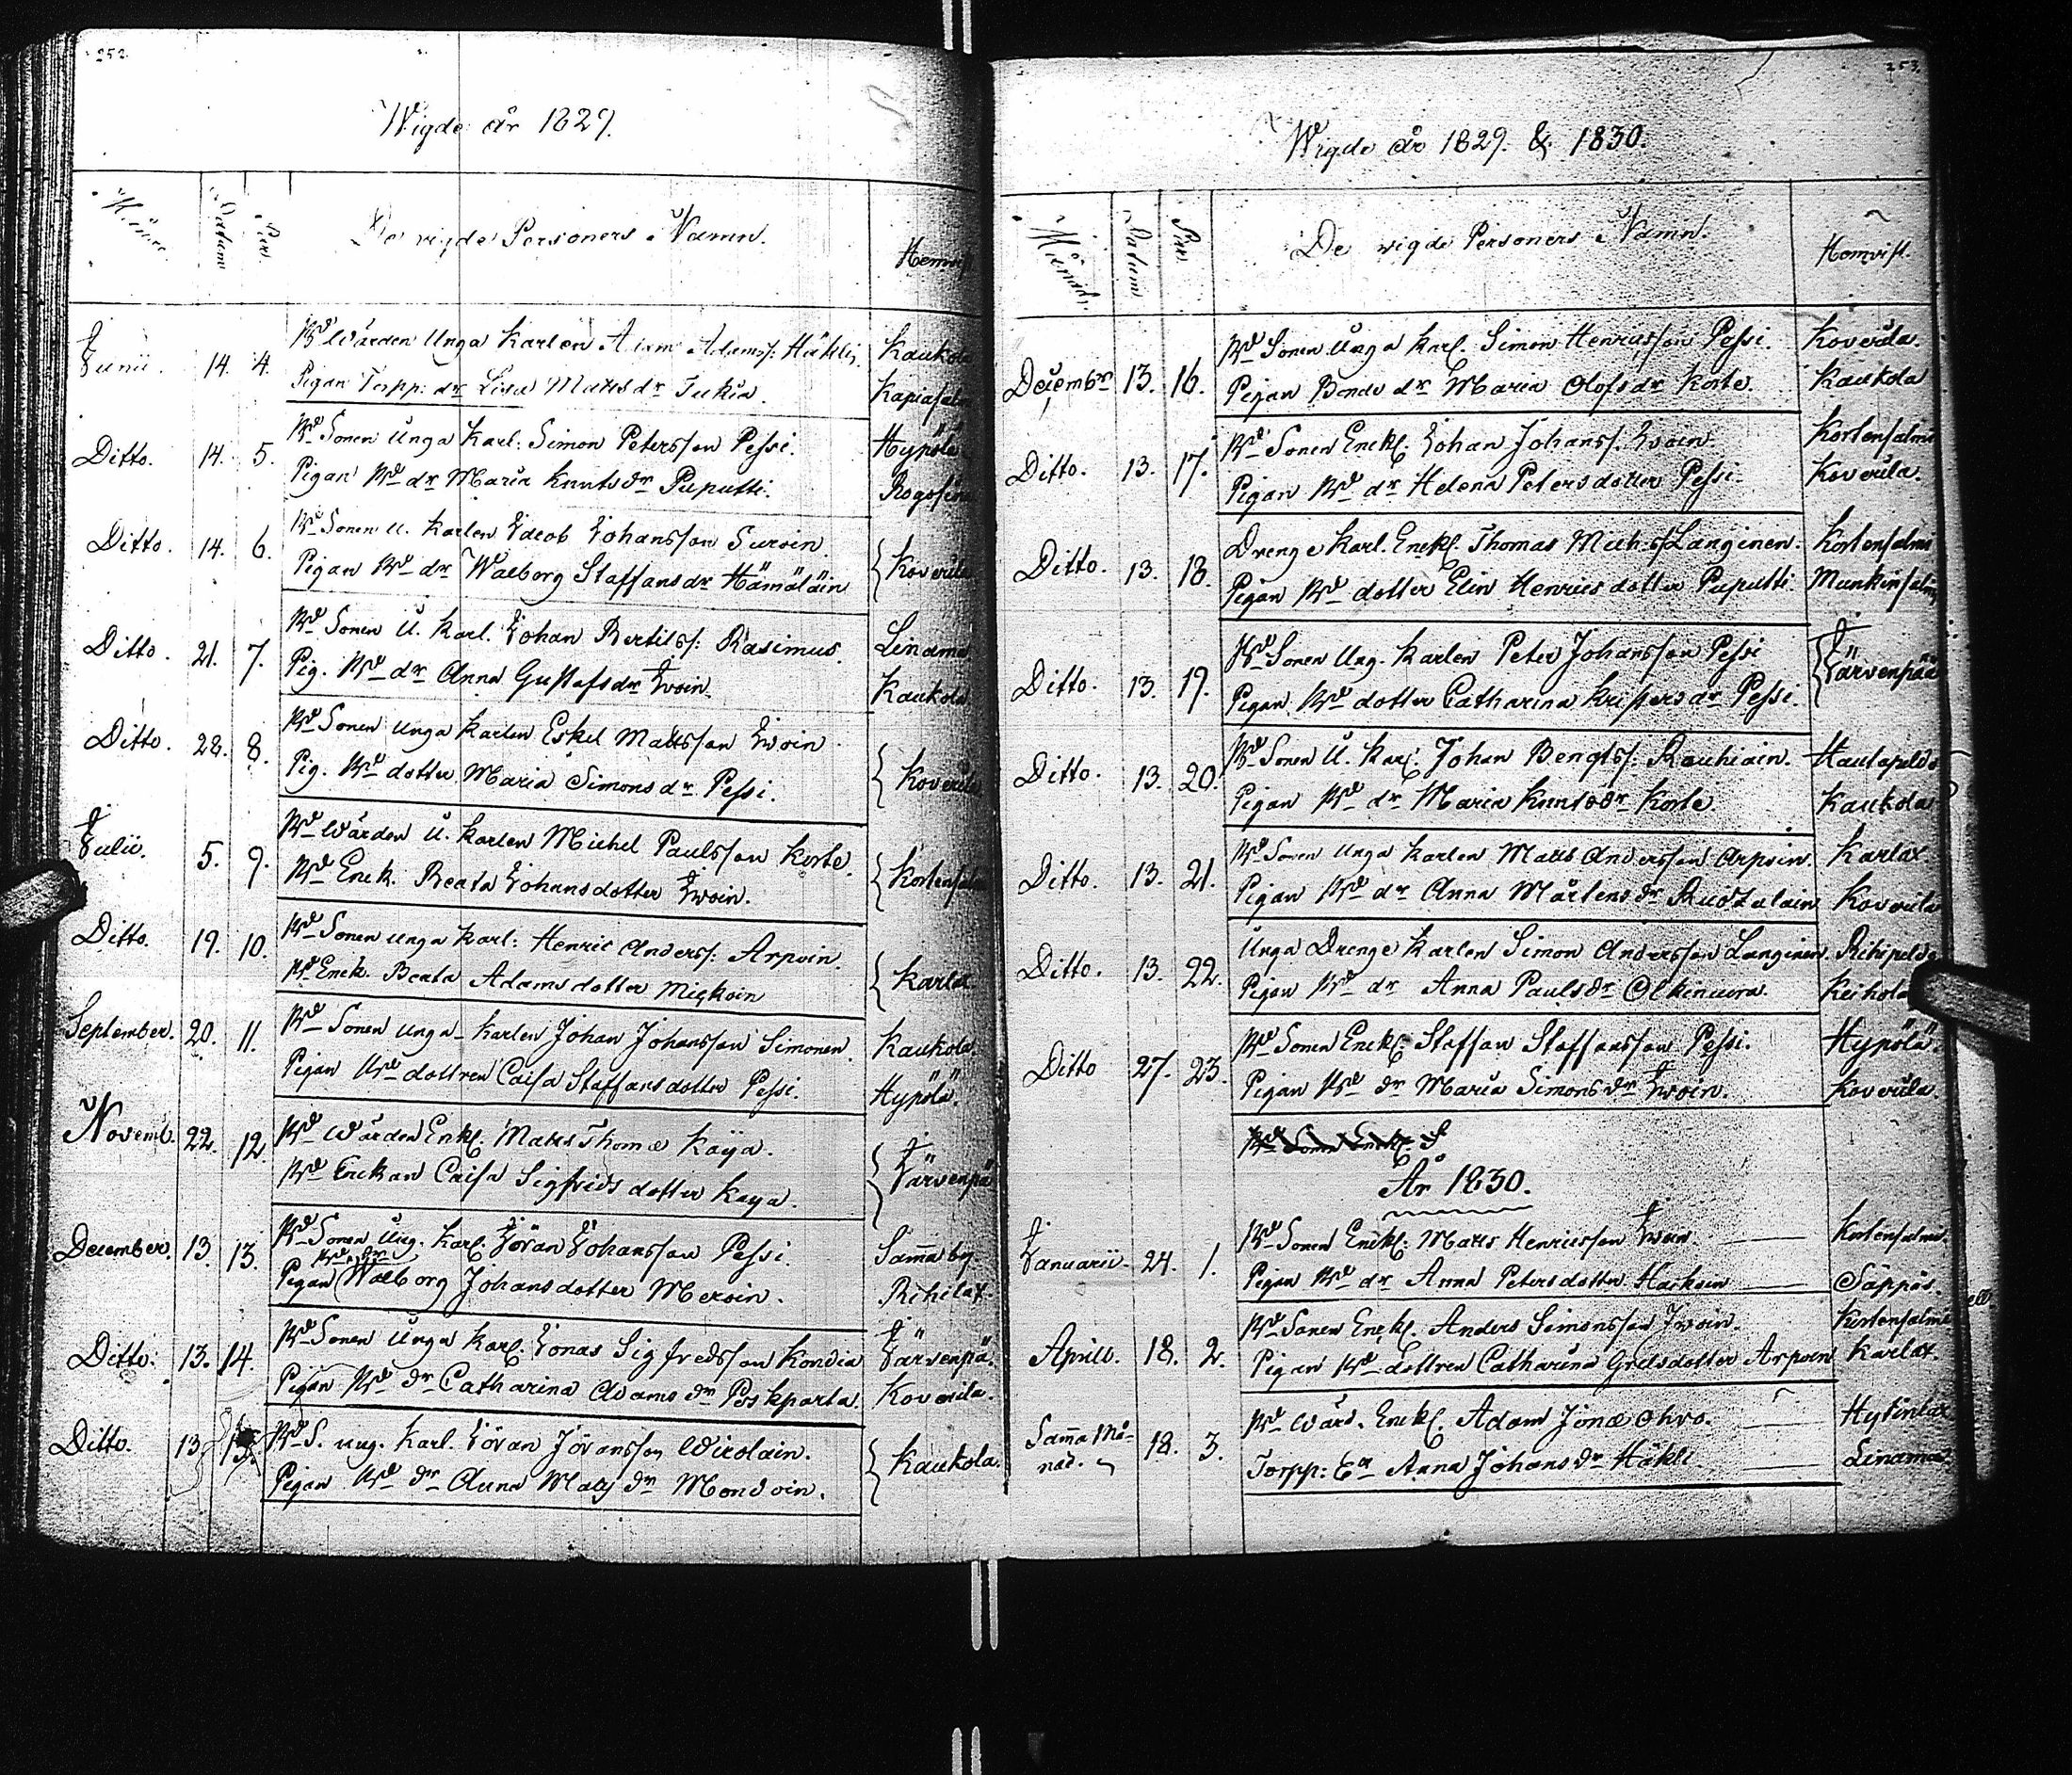 252.
Wigde år 1829.
Månad Datum Par De vigde Personers Namn. Hemvist
Junii. 14. 4. Bd Wärden Unga Karlen Adam Adamss: Häkli. Kaukola
Pigan Torp: dr Lisa Matts dr Tukia. Kapiasalmi
Ditto. 14. 5. Bd Sonen Unga Karl: Simon Petersson Pessi. Hypölä
Pigan Bd dr Maria Knuts dr Puputti. Rogosina
Ditto. 14. 6. Bd Sonen U. Karlen Jacob Johansson Suroin. { Koverila
Pigan Bd dr Walborg Staffans dr Hämäläin
Ditto. 21. 7. Bd Sonen U. Karl. Johan Bertilss: Rasimus. Linama
Pig. Bd dr Anna Gustafs dr Iwoin. Kaukola
Ditto. 28. 8. Bd Sonen Unga Karlen Eskel Mattsson Iwoin { Koverila
Pig. Bd dotter Maria Simons dr Pessi.
Julii. 5. 9. Bd Wärden U. Karlen Michel Paulsson Korte. { Kortensalmi
Bd Enck. Beata Johansdotter Iwoin.
Ditto. 19. 10. Bd Sonen Unga Karl: Henric Anderss: Arpoin. { Karlax
Bd Enck. Beata Adamsdotter Mickoin
September. 20. 11. Bd Sonen Unga Karlen Johan Johansson Simonen. Kaukola.
Pigan Bd dottren Caisa Staffansdotter Pessi. Hypölä.
Novemb. 22. 12. Bd Wärden Enkl. Matts Thomæ Kaya. { Järvenpä
Bd Enckan Caisa Sigfrids dotter Kaya.
December. 13. 13. Bd Sonen Ung. Karl. Jöran Johansson Pessi. Samma by
Bd dr
Pigan Walborg Johansdotter Meroin. Rihilax.
Ditto: 13. 14. Bd Sonen Unga Karl. Jonas Sigfredsson Kondia Järvenpä.
Pigan Bd dr Catharina Adams dr Poskparta. Koverila.
Ditto. 13 15. Bd S. ung. Karl. Jöran Jöransson Wirolain. { Kaukola.
Pigan Bd dr Anna Mats dr Mondoin.
253.
Wigde år 1829. & 1830.
Månad. Datum Par. De wigde Personers Namn. Hemvist.
Decembr 13. 16. Bd Sonen Unga Karl. Simon Henricsson Pessi. Koverila.
Pigan Bonde dr Maria Olofs dr Korte. Kaukola
Ditto. 13. 17. Bd Sonen Enckl. Johan Johanss. Iwoin. Kortensalmi
Pigan Bd dr Helena Petersdotter Pessi. Koverila.
Ditto. 13. 18. Drenge Karl. Enckl. Thomas Math:s Langinen. Kortensalmi
Pigan Bd dotter Elin Henricsdotter Puputti Munkinsalmi
Ditto. 13. 19. Bd Sonen Ung. Karlen Peter Johansson Pessi { Järvenpää
Pigan Bd dotter Catharina Krispers dr Pessi.
Ditto. 13. 20. Bd Sonen U. Karl. Johan Bengtss: Rauhiain. Hautapeldo
Pigan Bd dr Maria Knuts dr Korte Kaukola
Ditto. 13. 21. Bd Sonen Unga Karlen Matts Andersson Arpoin. Karlax
Pigan Bd dr Anna Mårtens dr Ruotzalain Koverila
Ditto. 13. 22. Unga Drenge Karlen Simon Andersson Langinen. Rihipeldo
Pigan Bd dr Anna Pauls dr Olkinuora. Keihola
Ditto 27. 23. Bd Sonen Enckl. Staffan Staffansson Pessi. Hypölä.
Pigan Bd dr Maria Simons dr Iwoin. Koverila.
Bd Sonen Enckl: S
År 1830.
Januarii. 24. 1. Bd Sonen Enckl. Matts Henricsson Iwoin. Kortensalmi.
Pigan Bd dr Anna Petersdotter Hackoin Säppäs.
Aprill. 18. 2. Bd Sonen Enckl. Anders Simonsson Iwoin. Kortensalmi
Pigan Bd dottren Catharina Grelsdotter Arpoin Karlax.
Samma Må-
nad. 18. 3. Bd Wärd. Enckl. Adam Jönæ Ohvo. Hytinlax
Torpp: Ea Anna Johans dr Häkli. Linamaa